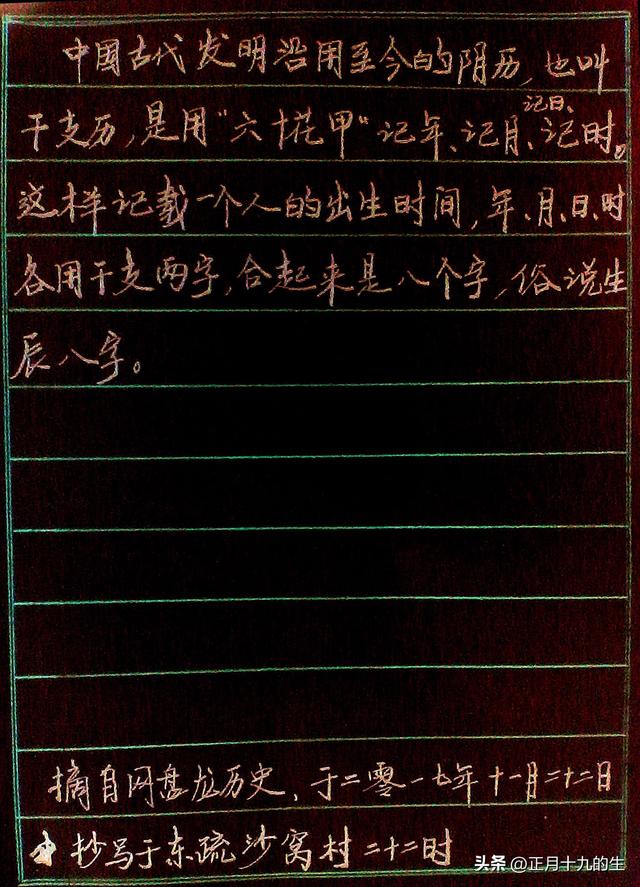 中国古代发明沿用至今的阴历，也叫
干支历，是用"六十花甲"记年、记月、记日、记时。
这样记载一个人的出生时间，年、月、日、时
各用干支两字，合起来是八个字，俗说生
辰八字。
摘自网盘龙历史、于二零一七年十一月二十二日
抄写于东疏沙窝村二十二时
头条 @正月十九的生